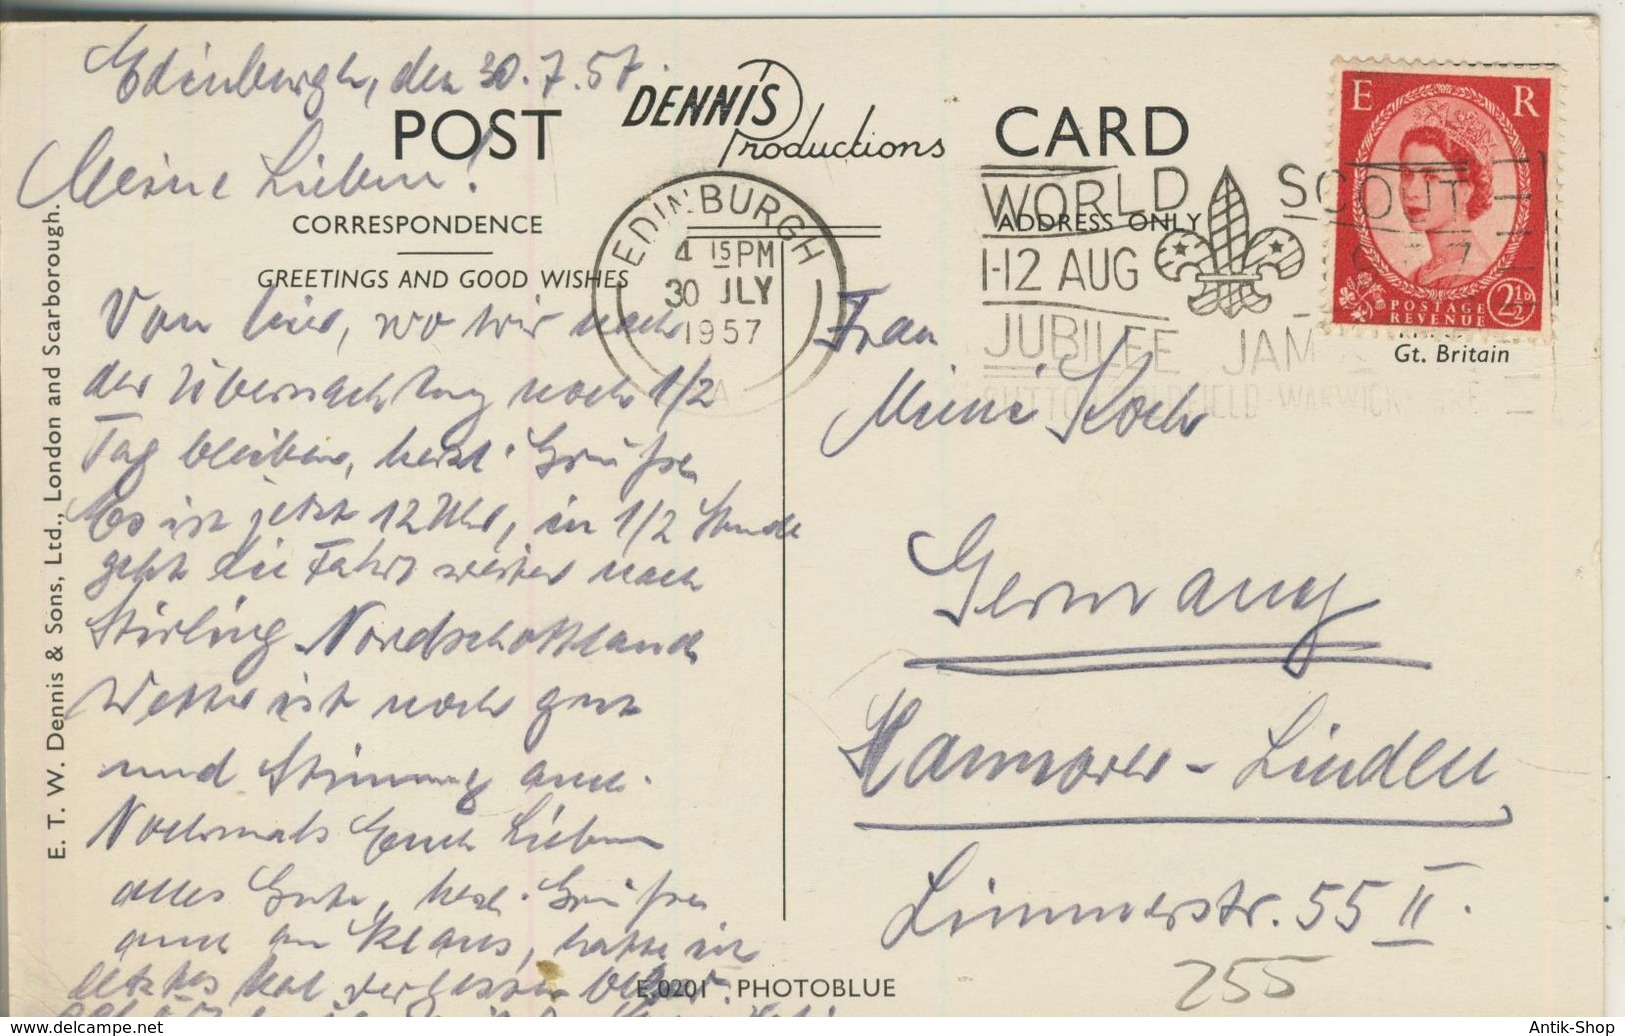 Edinburgh, den 30.7.57.
POST DENNIS Productions CARD
Meine Lieben!
CORRESPONDENCE
GREETINGS AND GOOD WISHES
EDINBURGH
4 15 PM
30 JLY
1957
WORLD SCOUT
ADDRESS ONLY
1-12 AUG
JUBILEE JAM
SUTTON COLDFIELD · WARWICKSHIRE
E R
POSTAGE
REVENUE
2½D
Gt. Britain
Von hier, wo wir nach
der Übernachtung noch 1/2
Tag bleiben, herzl. Grüße
Es ist jetzt 12 Uhr, in 1/2 Stunde
geht die Fahrt weiter nach
Stirling Nordschottland
Wetter ist noch gut
und Stimmung auch.
Nochmals Euch Lieben
alles Gute, herzl. Grüße
auch an Klaus, hatte ich
letztes Mal vergessen
Frau
Meine Koch
Germany
Hannover-Linden
Limmerstr. 55 II.
255
E.0201 PHOTOBLUE
E. T. W. Dennis & Sons, Ltd., London and Scarborough.
Antik-Shop